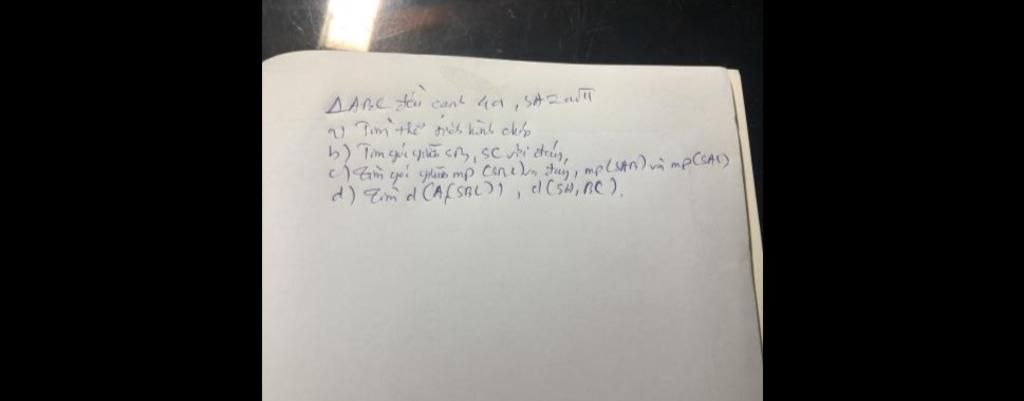 ΔABC đều cạnh 4a, SA = a√11
a) Tìm thể tích hình chóp
b) Tìm góc giữa SB, SC với đáy,
c) Tìm góc giữa mp (SBC) và đáy, mp(SAB) và mp(SAC)
d) Tìm d(A,(SBC)), d(SA, BC).